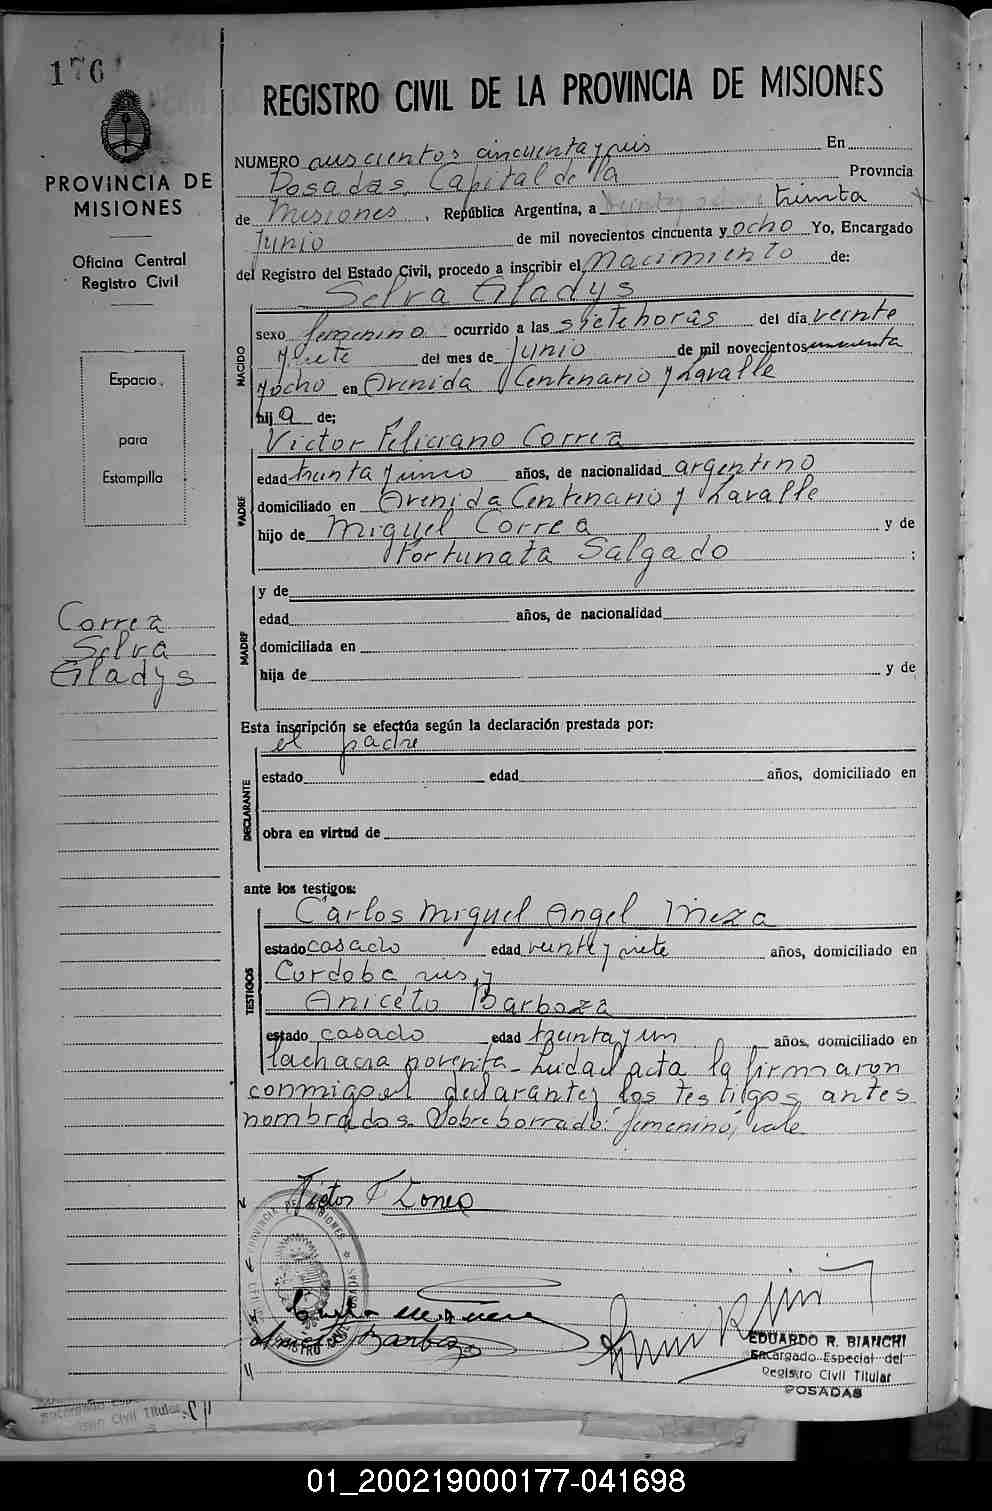 176
PROVINCIA DE
MISIONES
Oficina Central
Registro Civil
Espacio
para
Estampilla
Correa
Selva
Gladys
REGISTRO CIVIL DE LA PROVINCIA DE MISIONES
NUMERO cuscientos cincuenta y seis En
Posadas, Capital de la Provincia
de Misiones, República Argentina, a treinta
Junio de mil novecientos cincuenta y ocho Yo, Encargado
del Registro del Estado Civil, procedo a inscribir el Nacimiento de:
Selva Gladys
NACIDO
sexo femenino ocurrido a las siete horas del día veinte
y siete del mes de Junio de mil novecientos cincuenta
y ocho en Avenida Centenario y Lavalle
hij a de;
Victor Feliciano Correa
PADRE
edad treinta y cinco años, de nacionalidad argentino
domiciliado en Avenida Centenario y Lavalle
hijo de Miguel Correa y de
Fortunata Salgado ;
MADRE
y de
edad años, de nacionalidad
domiciliada en
hija de y de
Esta inscripción se efectúa según la declaración prestada por:
el padre
DECLARANTE
estado edad años, domiciliado en
obra en virtud de
ante los testigos:
Carlos Miguel Angel Meza
TESTIGOS
estado casado edad veinte y siete años, domiciliado en
Cordoba seis, y
Aniceto Barboza
estado casado edad treinta y un años, domiciliado en
la chacra noventa - Leida el acta la firmaron
conmigo el declarante y los testigos antes
nombrados. Sobre borrado: femenino, vale
Victor F Correa
Aniceto Barboza
EDUARDO R. BIANCHI
Encargado Especial del
Registro Civil Titular
POSADAS
01_200219000177-041698